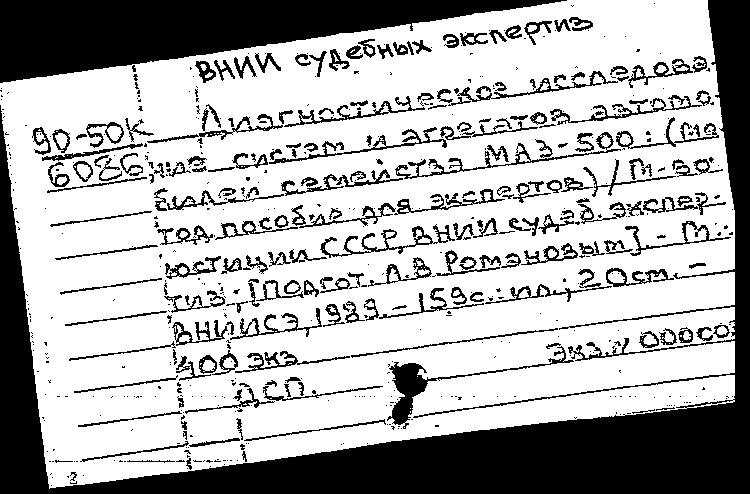 ВНИИ судебных экспертиз
90-50К Диагностическое исследова-
6086 ние систем и агрегатов автомо-
билей семейства МАЗ-500: (ме-
тод. пособие для экспертов) / М-во
юстиции СССР, ВНИИ судеб. экспер-
тиз; [Подгот. Л.В. Романовым]. - М.:
ВНИИСЭ, 1989. - 159с.: ил.; 20см. -
400 экз.
Экз. N
ДСП.